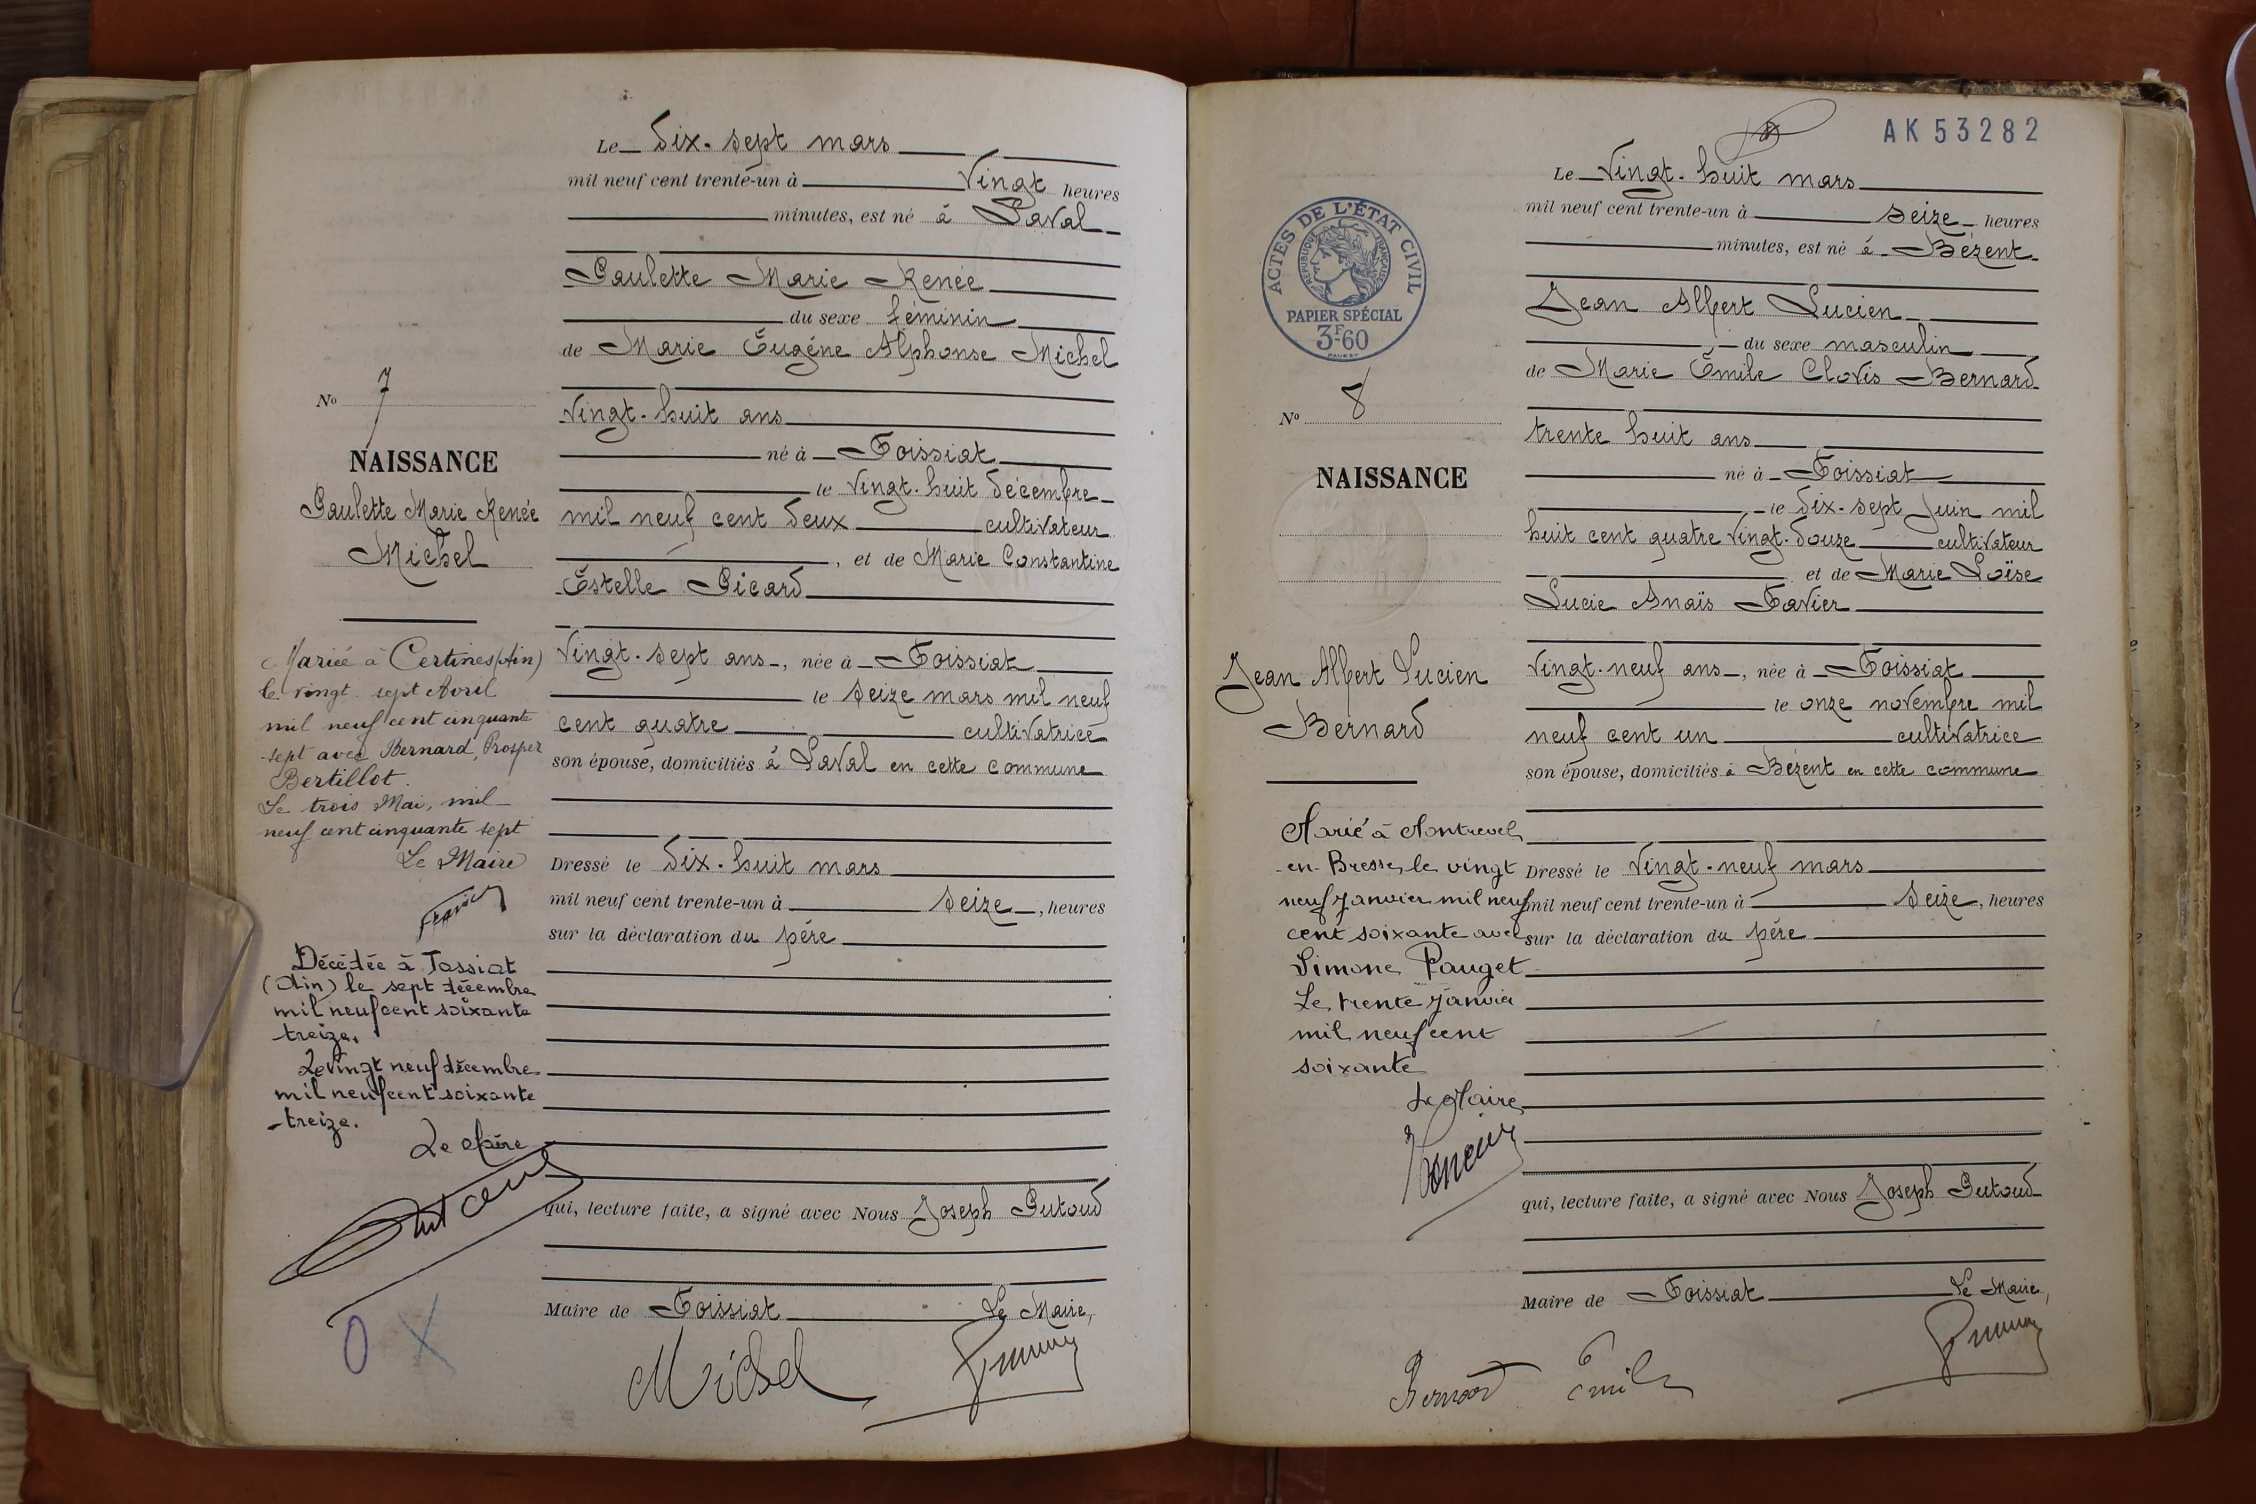 Le Dix-sept mars
mil neuf cent trente-un à Vingt heures
minutes, est né à Laval
Paulette Marie Renée
du sexe féminin
de Marie Eugène Alphonse Michel
Vingt-huit ans
né à Foissiat
le Vingt-huit Décembre
mil neuf cent Deux cultivateur
, et de Marie Constantine
Estelle Picard
Vingt-sept ans, née à Foissiat
le Seize mars mil neuf
cent quatre cultivatrice
son épouse, domiciliés à Laval en cette commune
Dressé le Dix-huit mars
mil neuf cent trente-un à Seize, heures
sur la déclaration du père
qui, lecture faite, a signé avec Nous Joseph Putoud
Maire de Foissiat Le Maire,
Michel
No 7
NAISSANCE
Paulette Marie Renée
Michel
Mariée à Certines (Ain)
le vingt sept Avril
mil neuf cent cinquante
-sept avec Bernard, Prosper
Bertillot.
Le trois Mai, mil
neuf cent cinquante sept
Le Maire
Décédée à Jassiat
(Ain) le sept décembre
mil neuf cent soixante
-treize.
Le Vingt neuf décembre
mil neuf cent soixante
-treize.
Le Maire
O X
8
AK 53282
Le Vingt-huit mars
mil neuf cent trente-un à seize heures
minutes, est né à Bézent
Jean Albert Lucien
du sexe masculin
de Marie Émile Clovis Bernard
trente huit ans
né à Foissiat
le Dix-sept Juin mil
huit cent quatre Vingt-Douze cultivateur
et de Marie Loïse
Lucie Anaïs Favier
Vingt-neuf ans, née à Foissiat
le onze novembre mil
neuf cent un cultivatrice
son épouse, domiciliés à Bézent en cette commune
Dressé le Vingt-neuf mars
mil neuf cent trente-un à Seize, heures
sur la déclaration du père
qui, lecture faite, a signé avec Nous Joseph Putoud
Maire de Foissiat Le Maire,
Bernard Emile
ACTES DE L'ÉTAT CIVIL
RÉPUBLIQUE FRANÇAISE
PAPIER SPÉCIAL
3F60
No 8
NAISSANCE
Jean Albert Lucien
Bernard
Marié à Montrevel
-en-Bresse, le vingt
neuf janvier mil neuf
cent soixante avec
Simone Pauget
Le trente janvier
mil neuf cent
soixante
Le Maire